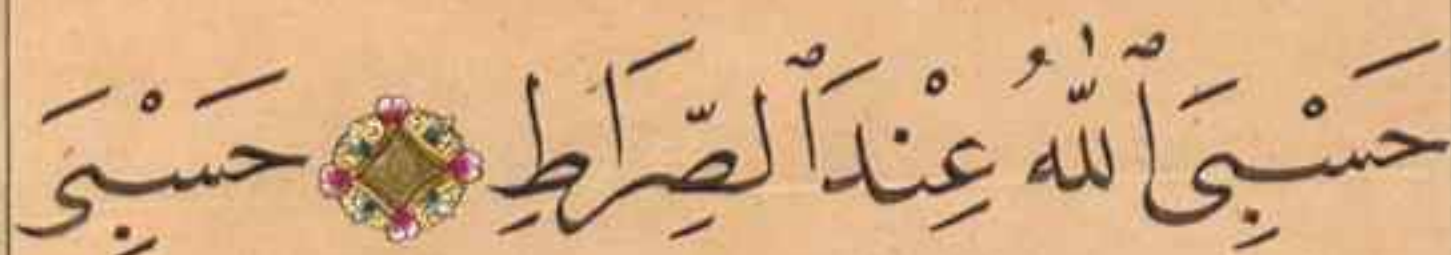 حَسْبِىَ ٱللّٰهُ عِنْدَ ٱلصِّرَاطِ حَسْبِىَ